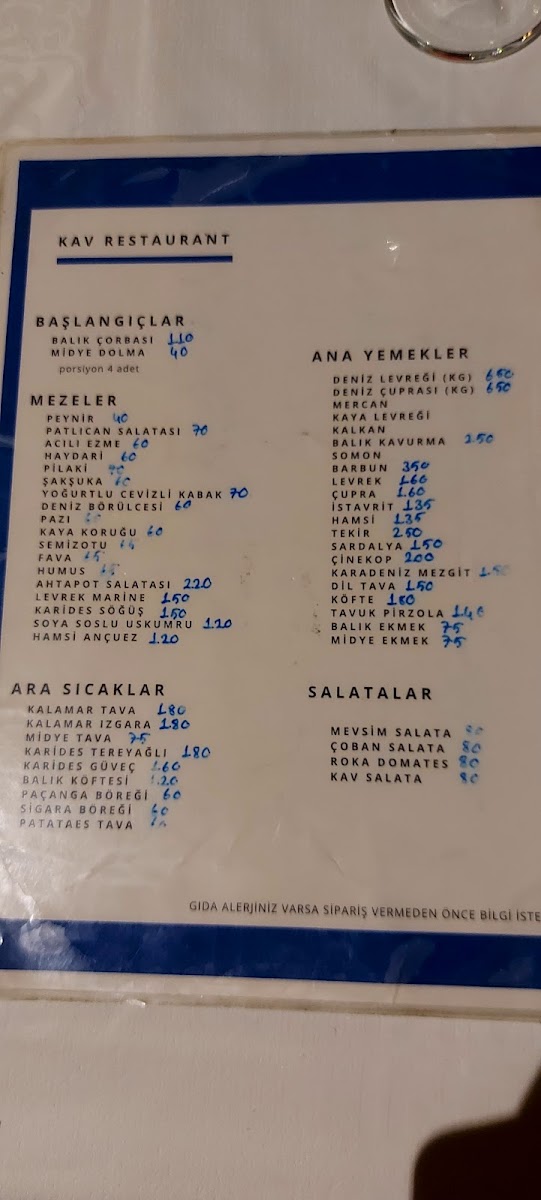 KAV RESTAURANT
BAŞLANGIÇLAR
BALIK ÇORBASI 110
MİDYE DOLMA 40
porsiyon 4 adet
MEZELER
PEYNİR 40
PATLICAN SALATASI 70
ACILI EZME 60
HAYDARİ 60
PİLAKİ
ŞAKŞUKA 60
YOĞURTLU CEVİZLİ KABAK 70
DENİZ BÖRÜLCESİ 60
PAZI
KAYA KORUĞU 60
SEMİZOTU
FAVA
HUMUS
AHTAPOT SALATASI 220
LEVREK MARİNE 150
KARİDES SÖĞÜŞ 150
SOYA SOSLU USKUMRU 120
HAMSİ ANÇUEZ 120
ARA SICAKLAR
KALAMAR TAVA 180
KALAMAR IZGARA 180
MİDYE TAVA 75
KARİDES TEREYAĞLI 180
KARİDES GÜVEÇ 160
BALIK KÖFTESİ 120
PAÇANGA BÖREĞİ 60
SİGARA BÖREĞİ 60
PATATAES TAVA
ANA YEMEKLER
DENİZ LEVREĞİ (KG) 650
DENİZ ÇUPRASI (KG) 650
MERCAN
KAYA LEVREĞİ
KALKAN
BALIK KAVURMA 250
SOMON
BARBUN 350
LEVREK 160
ÇUPRA 160
İSTAVRİT 135
HAMSİ 135
TEKİR 250
SARDALYA 150
ÇİNEKOP 200
KARADENİZ MEZGİT
DİL TAVA 150
KÖFTE 180
TAVUK PİRZOLA 140
BALIK EKMEK 75
MİDYE EKMEK 75
SALATALAR
MEVSİM SALATA 80
ÇOBAN SALATA 80
ROKA DOMATES 80
KAV SALATA 80
GIDA ALERJİNİZ VARSA SİPARİŞ VERMEDEN ÖNCE BİLGİ İSTE